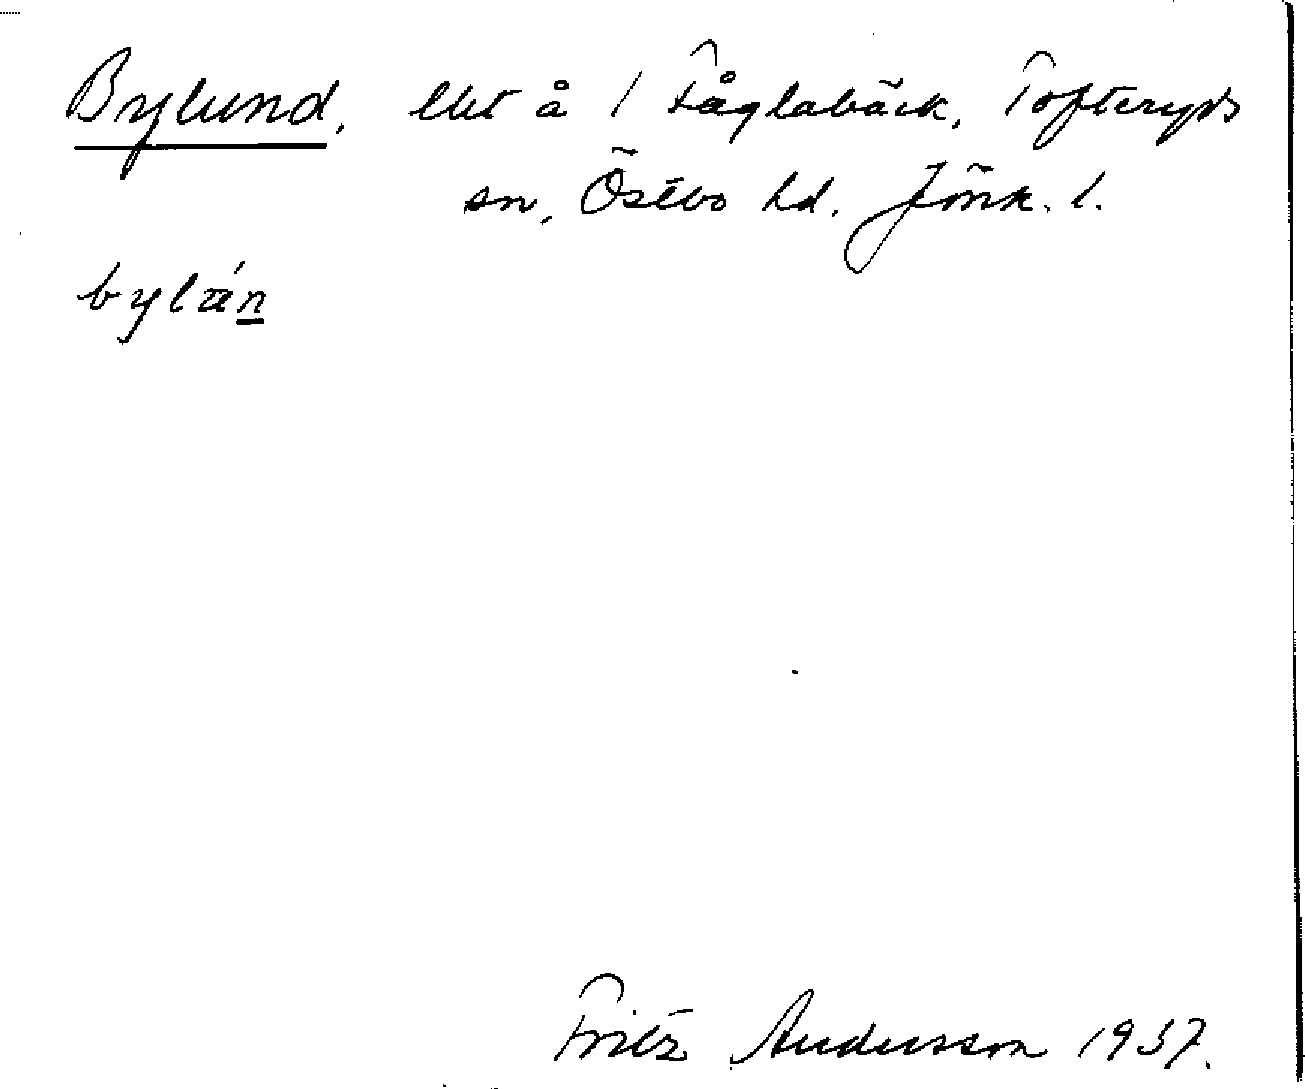 Bylund, lht å 1 Fåglabäck, Tofteryds
sn, Östbo hd. Jönk. l.
bylán
Fritz Andersson 1937.